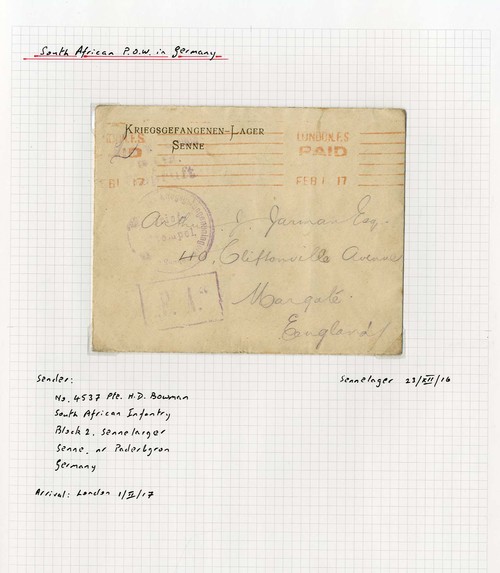 South African P.O.W. in Germany
KRIEGSGEFANGENEN-LAGER
SENNE
LONDON.F.S
PAID
FEB 1 17
J. Jarman Esq.
40, Cliftonville Avenue
Margate.
England
Sender:
No. 4537 Pte. H.D. Bowman
South African Infantry
Block 2. Sennelarger
Senne, nr Paderbgron
Germany
Sennelager 23/XII/16
Arrival: London 1/II/17